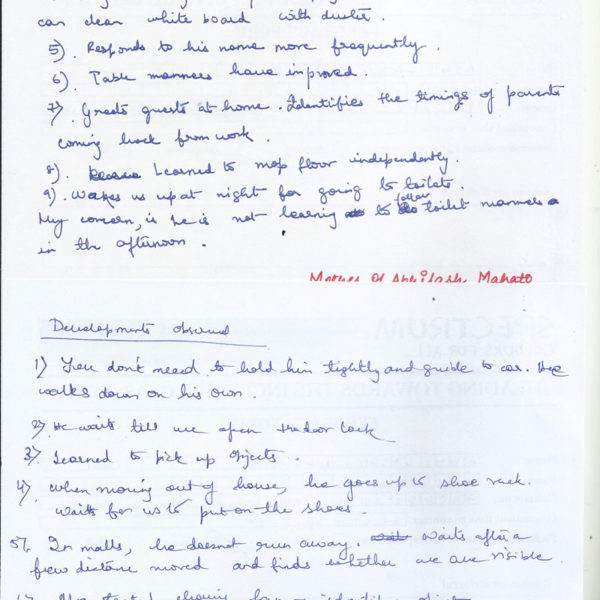 can clean white board with duster.
5). Responds to his name more frequently.
6). Table manners have improved.
7) Greets guests at home. Identifies the timings of parents
coming back from work.
8). Learned to mop floor independently.
9). Wakes us up at night for going to toilets.
My concern, is he is not learning to follow toilet manners
in the afternoon.
Mother Of Abhilash Mahato
Developments observed
1) You don't need to hold him tightly and guide to car. He
walks down on his own.
2) He waits till we open the door lock
3) Learned to pick up objects.
4) When moving out of house, he goes up to shoe rack.
Waits for us to put on the shoes.
5) In malls, he doesnot run away. Waits after a
few distance moved and finds whether we are visible.
SPECTRUM